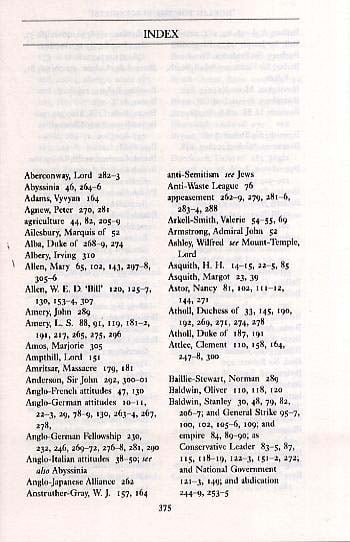 INDEX
Aberconway, Lord 282–3
Abyssinia 46, 264–6
Adams, Vyvyan 164
Agnew, Peter 270, 281
agriculture 44, 82, 205–9
Ailesbury, Marquis of 52
Alba, Duke of 268–9, 274
Albery, Irving 310
Allen, Mary 65, 102, 143, 297–8,
305–6
Allen, W. E. D. 'Bill' 120, 125–7,
130, 153–4, 307
Amery, John 289
Amery, L. S. 88, 91, 119, 181–2,
191, 217, 265, 275, 296
Amos, Marjorie 305
Ampthill, Lord 151
Amritsar, Massacre 179, 181
Anderson, Sir John 292, 300–01
Anglo-French attitudes 47, 130
Anglo-German attitudes 10–11,
22–3, 29, 78–9, 130, 263–4, 267,
278,
Anglo-German Fellowship 230,
232, 246, 269–72, 276–8, 281, 290
Anglo-Italian attitudes 38–50; see
also Abyssinia
Anglo-Japanese Alliance 262
Anstruther-Gray, W. J. 157, 164
anti-Semitism see Jews
Anti-Waste League 76
appeasement 262–9, 279, 281–6,
283–4, 288
Arkell-Smith, Valerie 54–55, 69
Armstrong, Admiral John 52
Ashley, Wilfred see Mount-Temple,
Lord
Asquith, H. H. 14–15, 22–5, 85
Asquith, Margot 23, 39
Astor, Nancy 81, 102, 111–12,
144, 271
Atholl, Duchess of 33, 145, 190,
192, 269, 271, 274, 278
Atholl, Duke of 187, 191
Attlee, Clement 110, 158, 164,
247–8, 300
Baillie-Stewart, Norman 289
Baldwin, Oliver 110, 118, 120
Baldwin, Stanley 30, 48, 79, 82,
206–7; and General Strike 95–7,
100, 102, 105–6, 109; and
empire 84, 89–90; as
Conservative Leader 83–5, 87,
115, 118–19, 122–3, 151–2, 272;
and National Government
121–3, 149; and abdication
244–9, 253–5
375